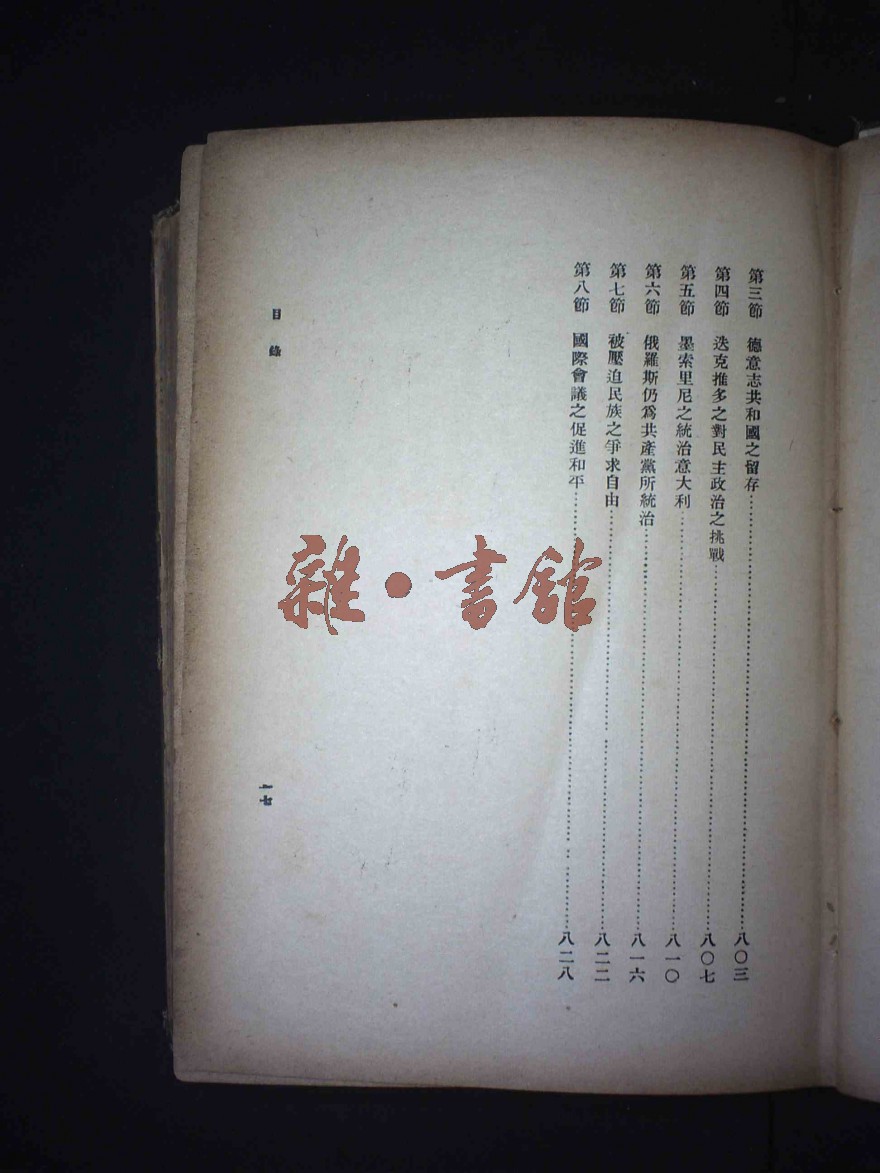 第三節　德意志共和國之留存……八〇三
第四節　迭克推多之對民主政治之挑戰……八〇七
第五節　墨索里尼之統治意大利……八一〇
第六節　俄羅斯仍爲共產黨所統治……八一六
第七節　被壓迫民族之爭求自由……八二二
第八節　國際會議之促進和平……八二八
目錄
一七
雜·書館